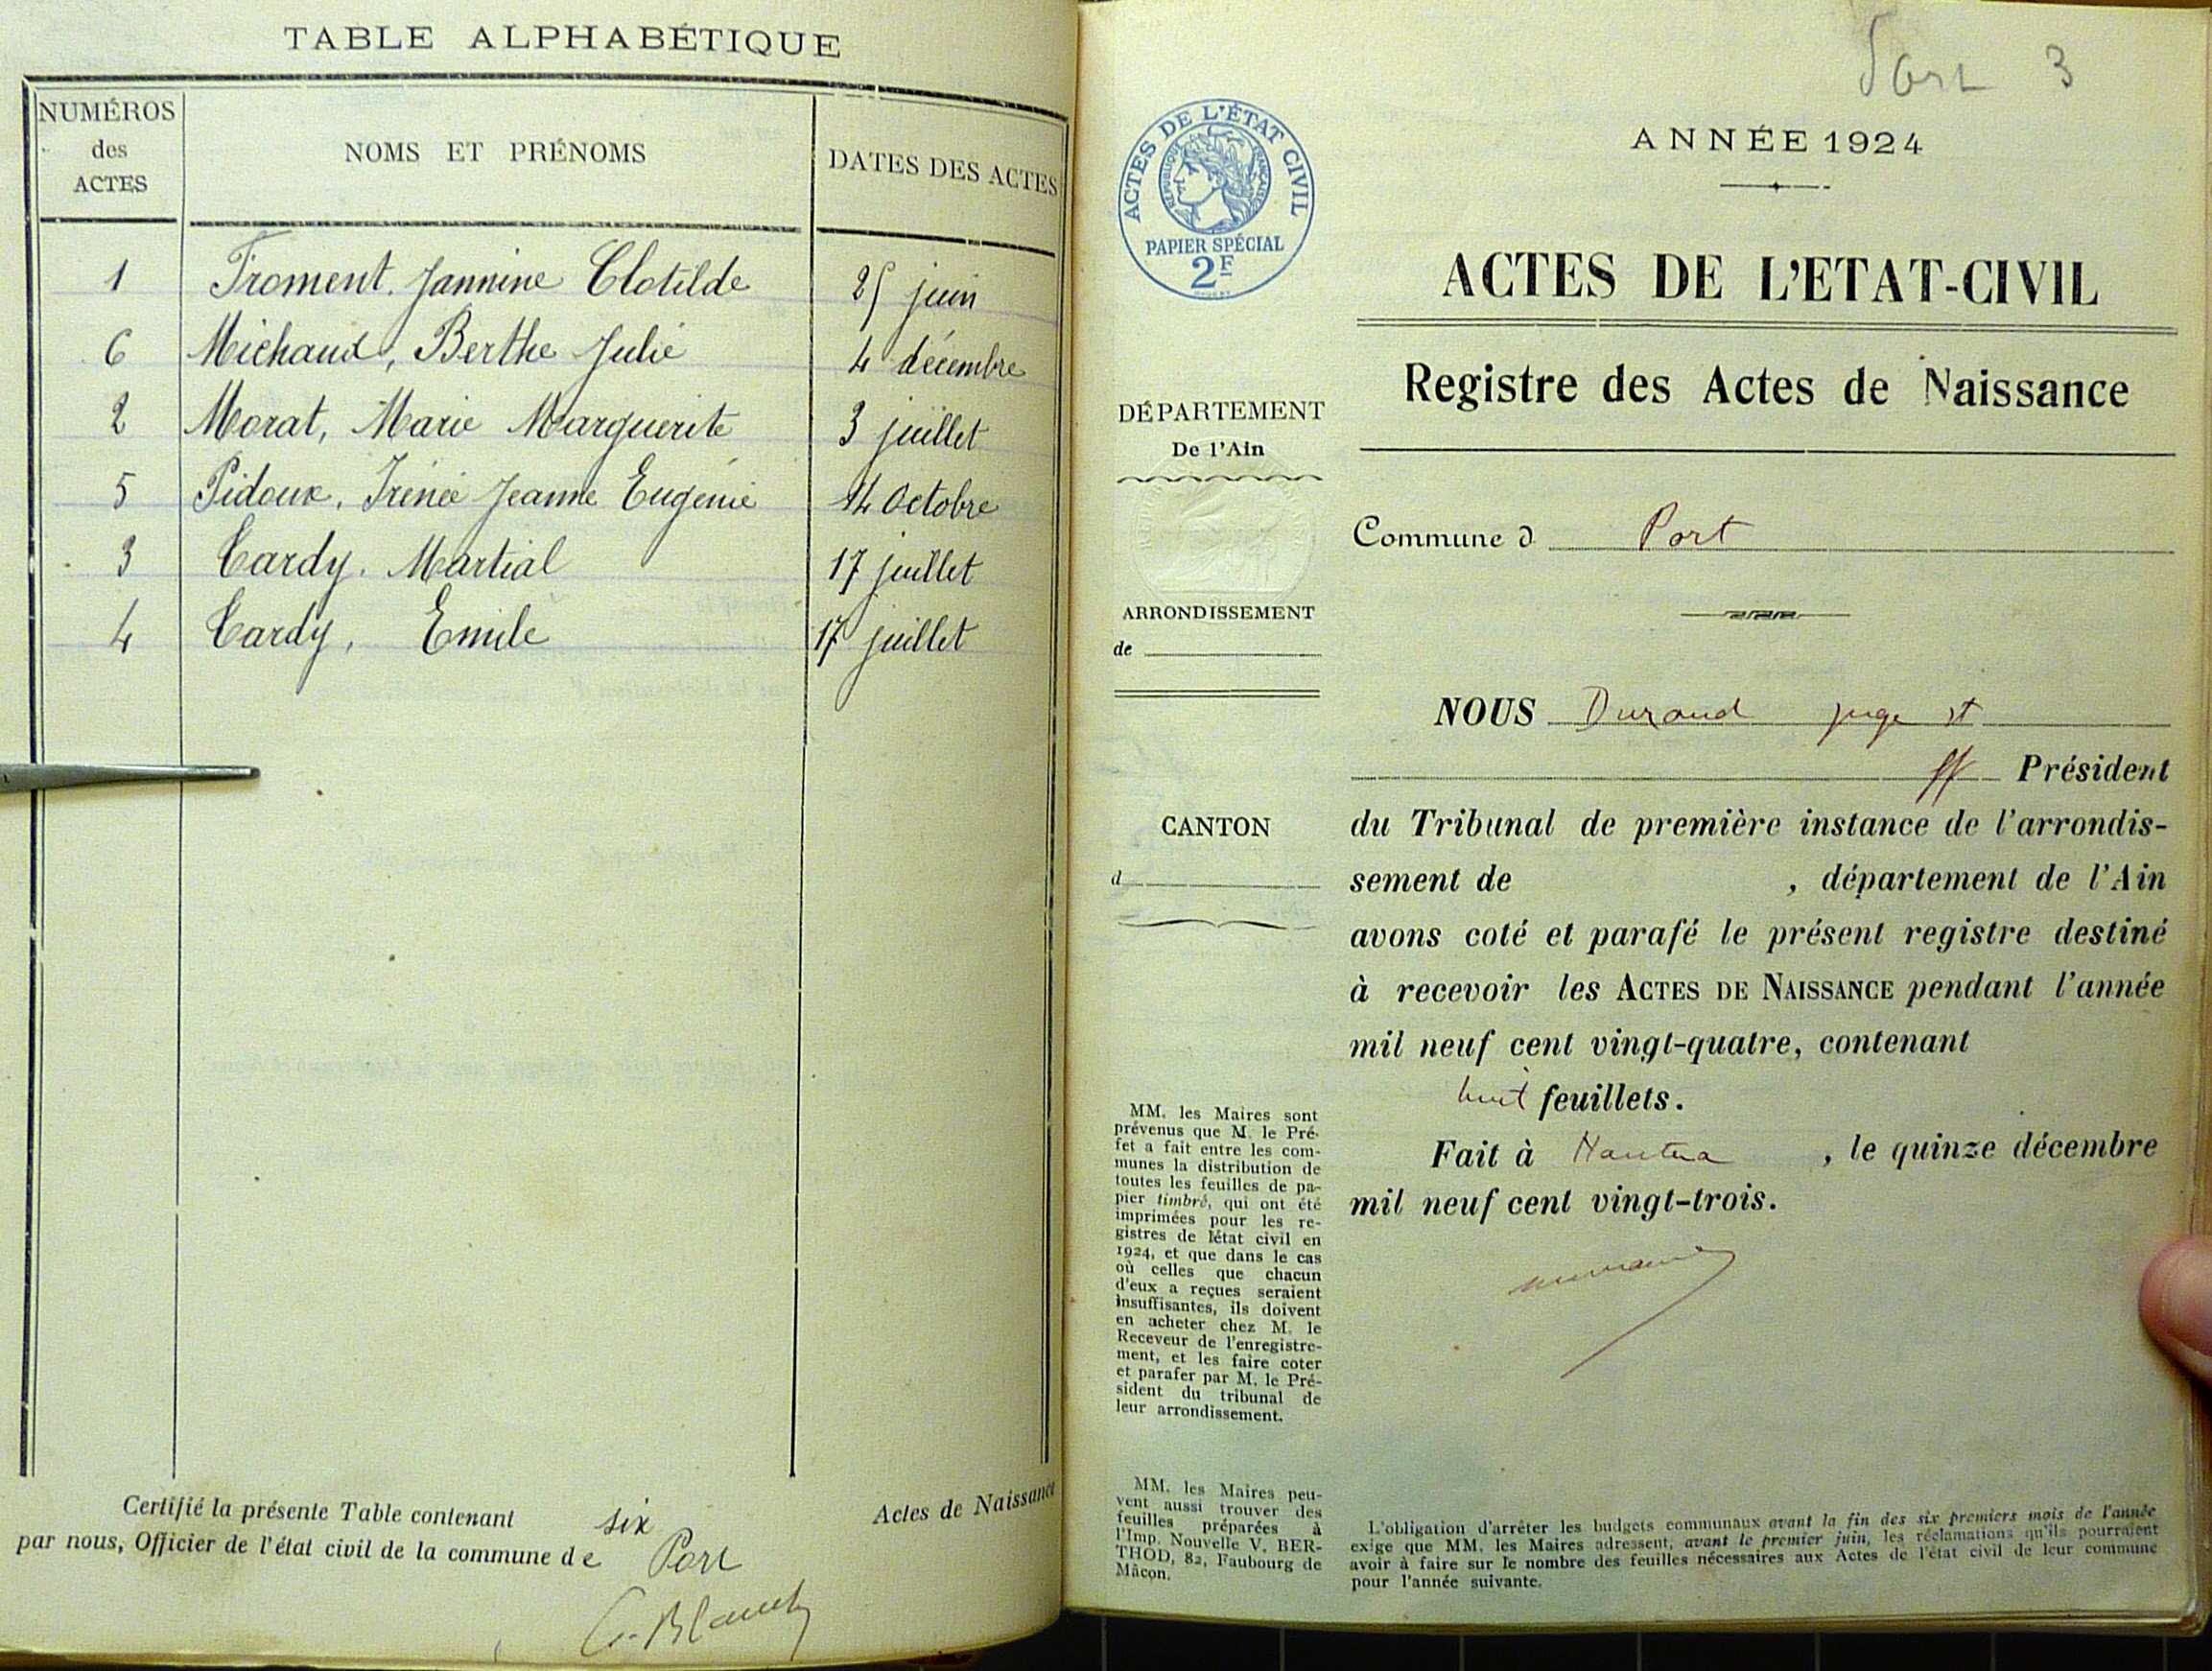 TABLE ALPHABÉTIQUE
NUMÉROS des ACTES
NOMS ET PRÉNOMS
DATES DES ACTES
1 Froment. Jannine Clotilde 25 juin
6 Michaud, Berthe Julie 4 décembre
2 Morat, Marie Marguerite 3 juillet
5 Pidoux. Irénée Jeanne Eugénie 14 Octobre
3 Tardy. Martial 17 juillet
4 Tardy, Emile 17 juillet
Certifié la présente Table contenant six Actes de Naissance
par nous, Officier de l'état civil de la commune de Port
Port 3
ACTES DE L'ÉTAT CIVIL
RÉPUBLIQUE FRANÇAISE
PAPIER SPÉCIAL
2F
ANNÉE 1924
ACTES DE L'ETAT-CIVIL
Registre des Actes de Naissance
DÉPARTEMENT
De l'Ain
Commune d Port
ARRONDISSEMENT
de
CANTON
d
NOUS Durand juge st
ff Président
du Tribunal de première instance de l'arrondis-
sement de , département de l'Ain
avons coté et parafé le présent registre destiné
à recevoir les ACTES DE NAISSANCE pendant l'année
mil neuf cent vingt-quatre, contenant
huit feuillets.
Fait à Nantua , le quinze décembre
mil neuf cent vingt-trois.
MM. les Maires sont
prévenus que M. le Pré-
fet a fait entre les com-
munes la distribution de
toutes les feuilles de pa-
pier timbré, qui ont été
imprimées pour les re-
gistres de létat civil en
1924, et que dans le cas
où celles que chacun
d'eux a reçues seraient
insuffisantes, ils doivent
en acheter chez M. le
Receveur de l'enregistre-
ment, et les faire coter
et parafer par M. le Pré-
sident du tribunal de
leur arrondissement.
MM. les Maires peu-
vent aussi trouver des
feuilles préparées à
l'Imp. Nouvelle V. BER-
THOD, 82, Faubourg de
Mâcon.
L'obligation d'arrêter les budgets communaux avant la fin des six premiers mois de l'année
exige que MM. les Maires adressent, avant le premier juin, les réclamations qu'ils pourraient
avoir à faire sur le nombre des feuilles nécessaires aux Actes de l'état civil de leur commune
pour l'année suivante.